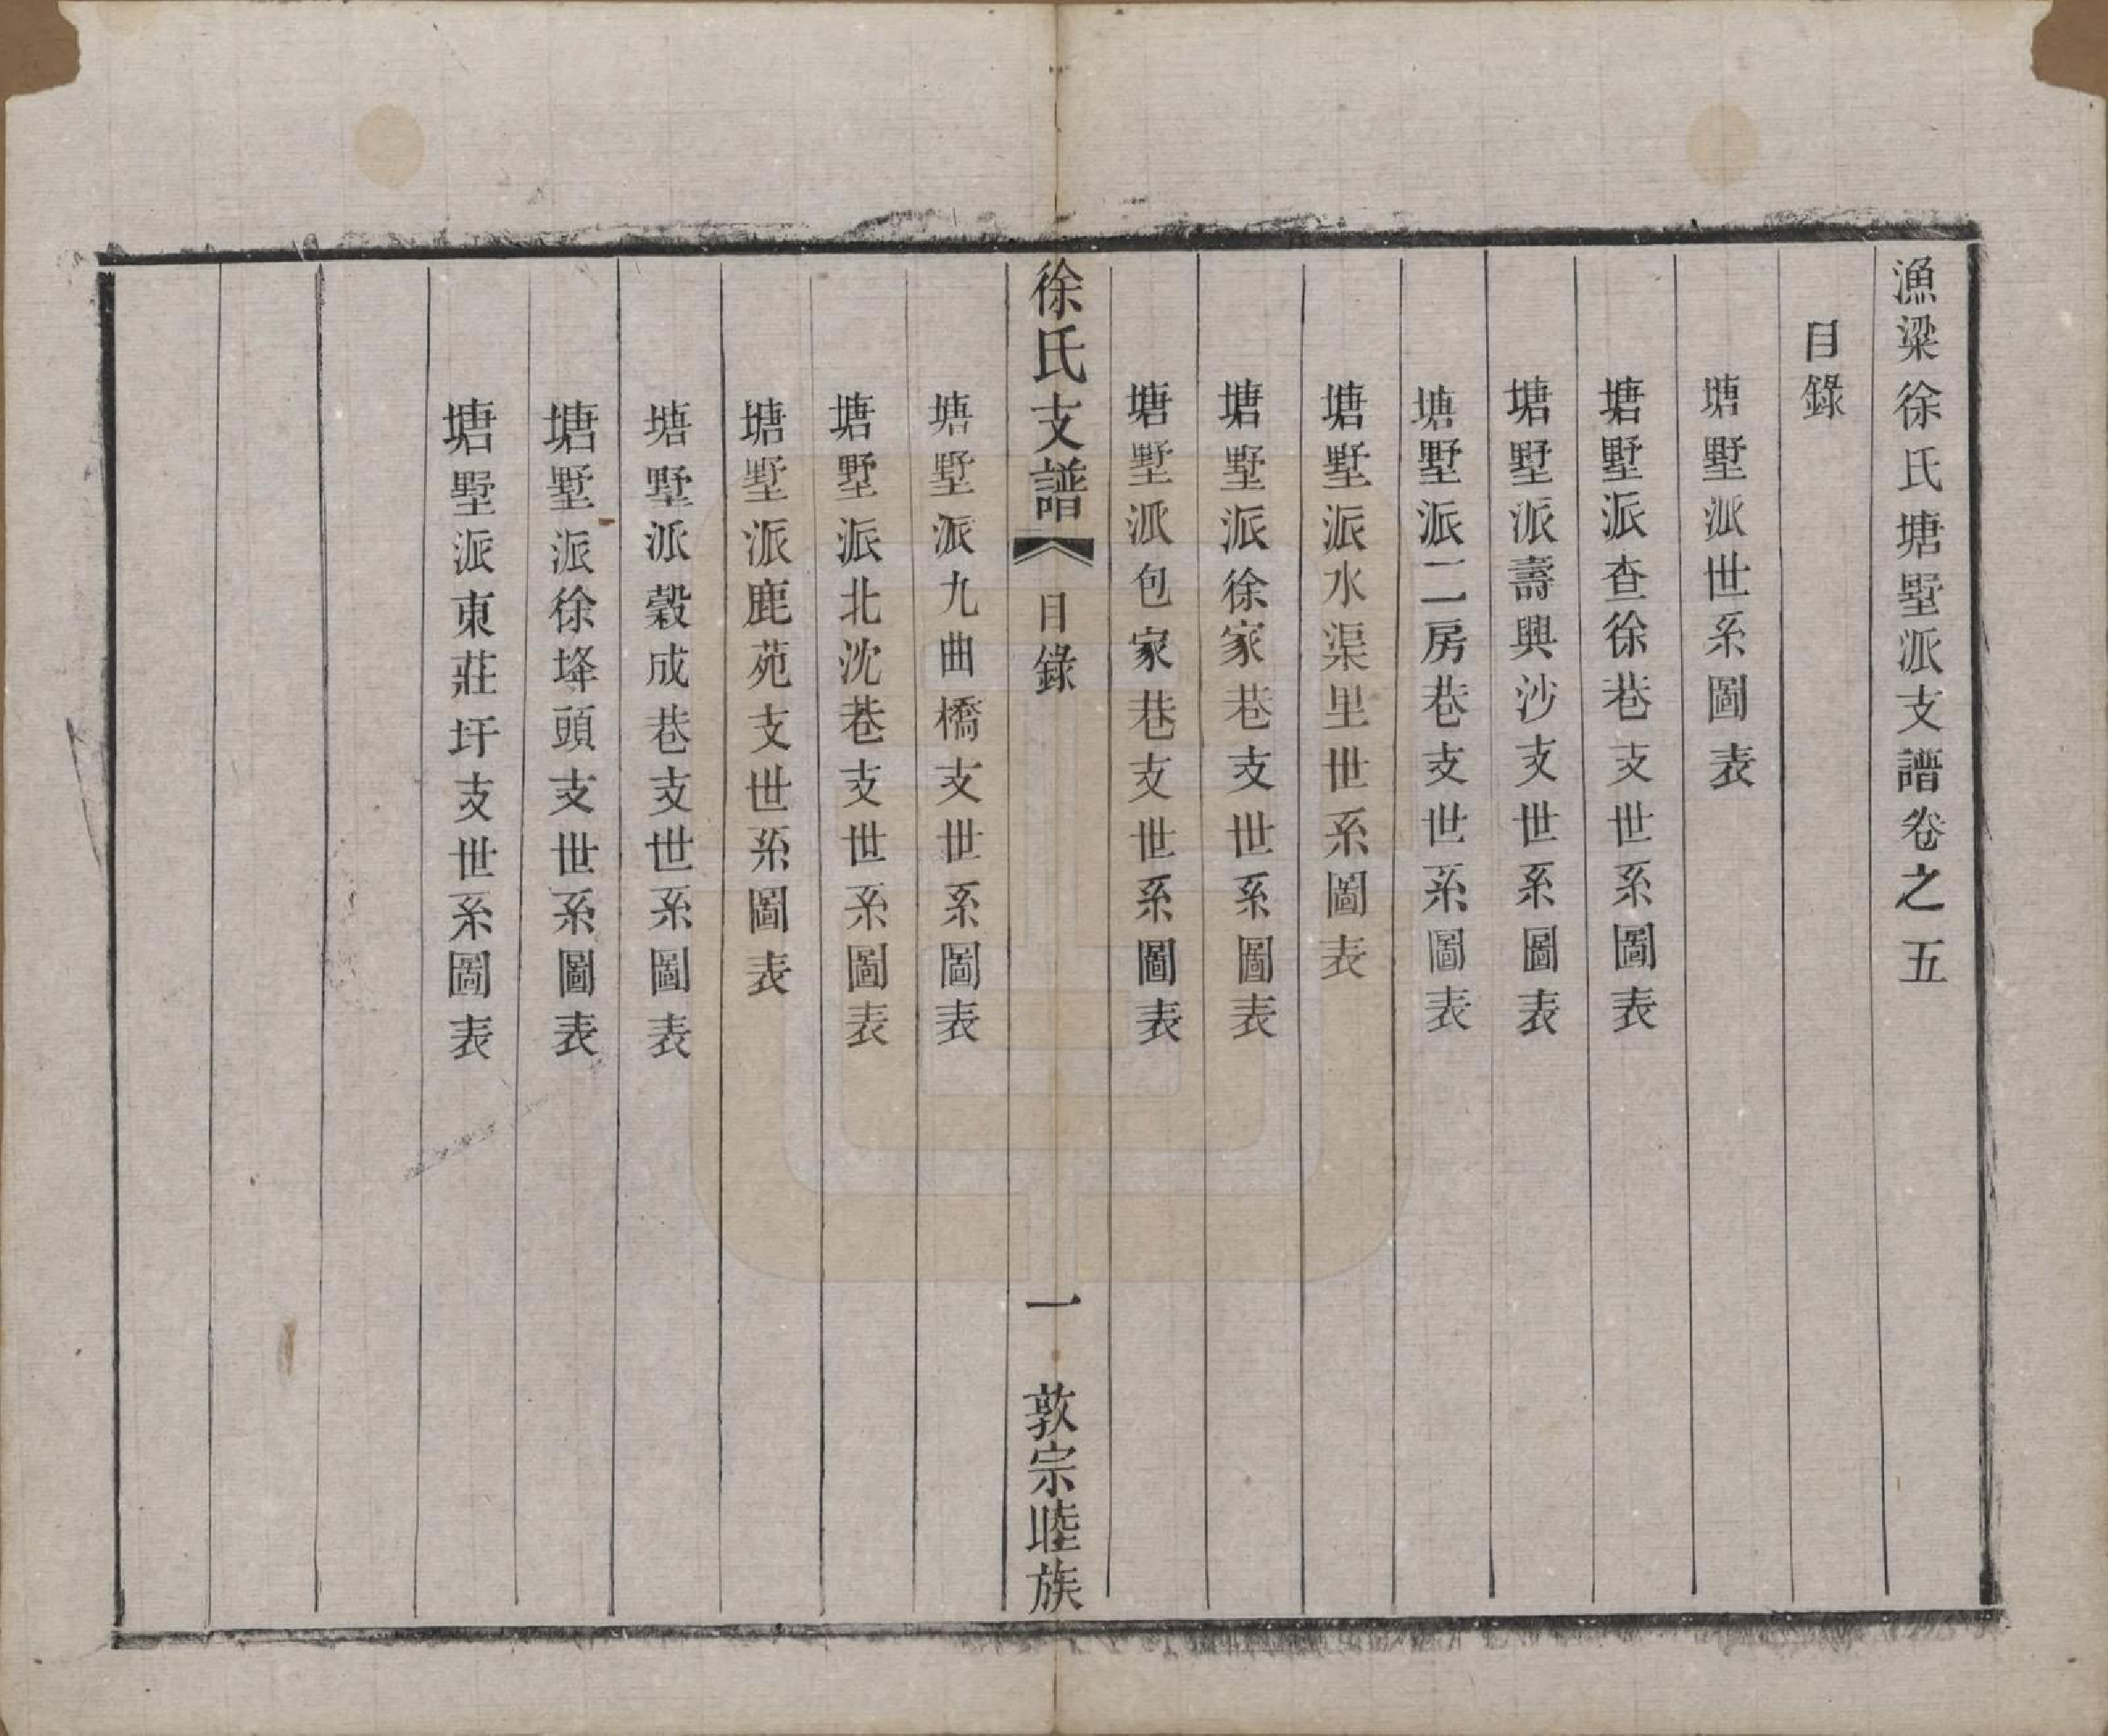 漁梁徐氏塘墅派支譜卷之五
目錄
塘墅派世系圖表
塘墅派查徐巷支世系圖表
塘墅派壽興沙支世系圖表
塘墅派二房巷支世系圖表
塘墅派水渠里世系圖表
塘墅派徐家巷支世系圖表
塘墅派包家巷支世系圖表
徐氏支譜 目錄 一 敦宗睦族
塘墅派九曲橋支世系圖表
塘墅派北沈巷支世系圖表
塘墅派鹿苑支世系圖表
塘墅派穀成巷支世系圖表
塘墅派徐垾頭支世系圖表
塘墅派東莊圩支世系圖表